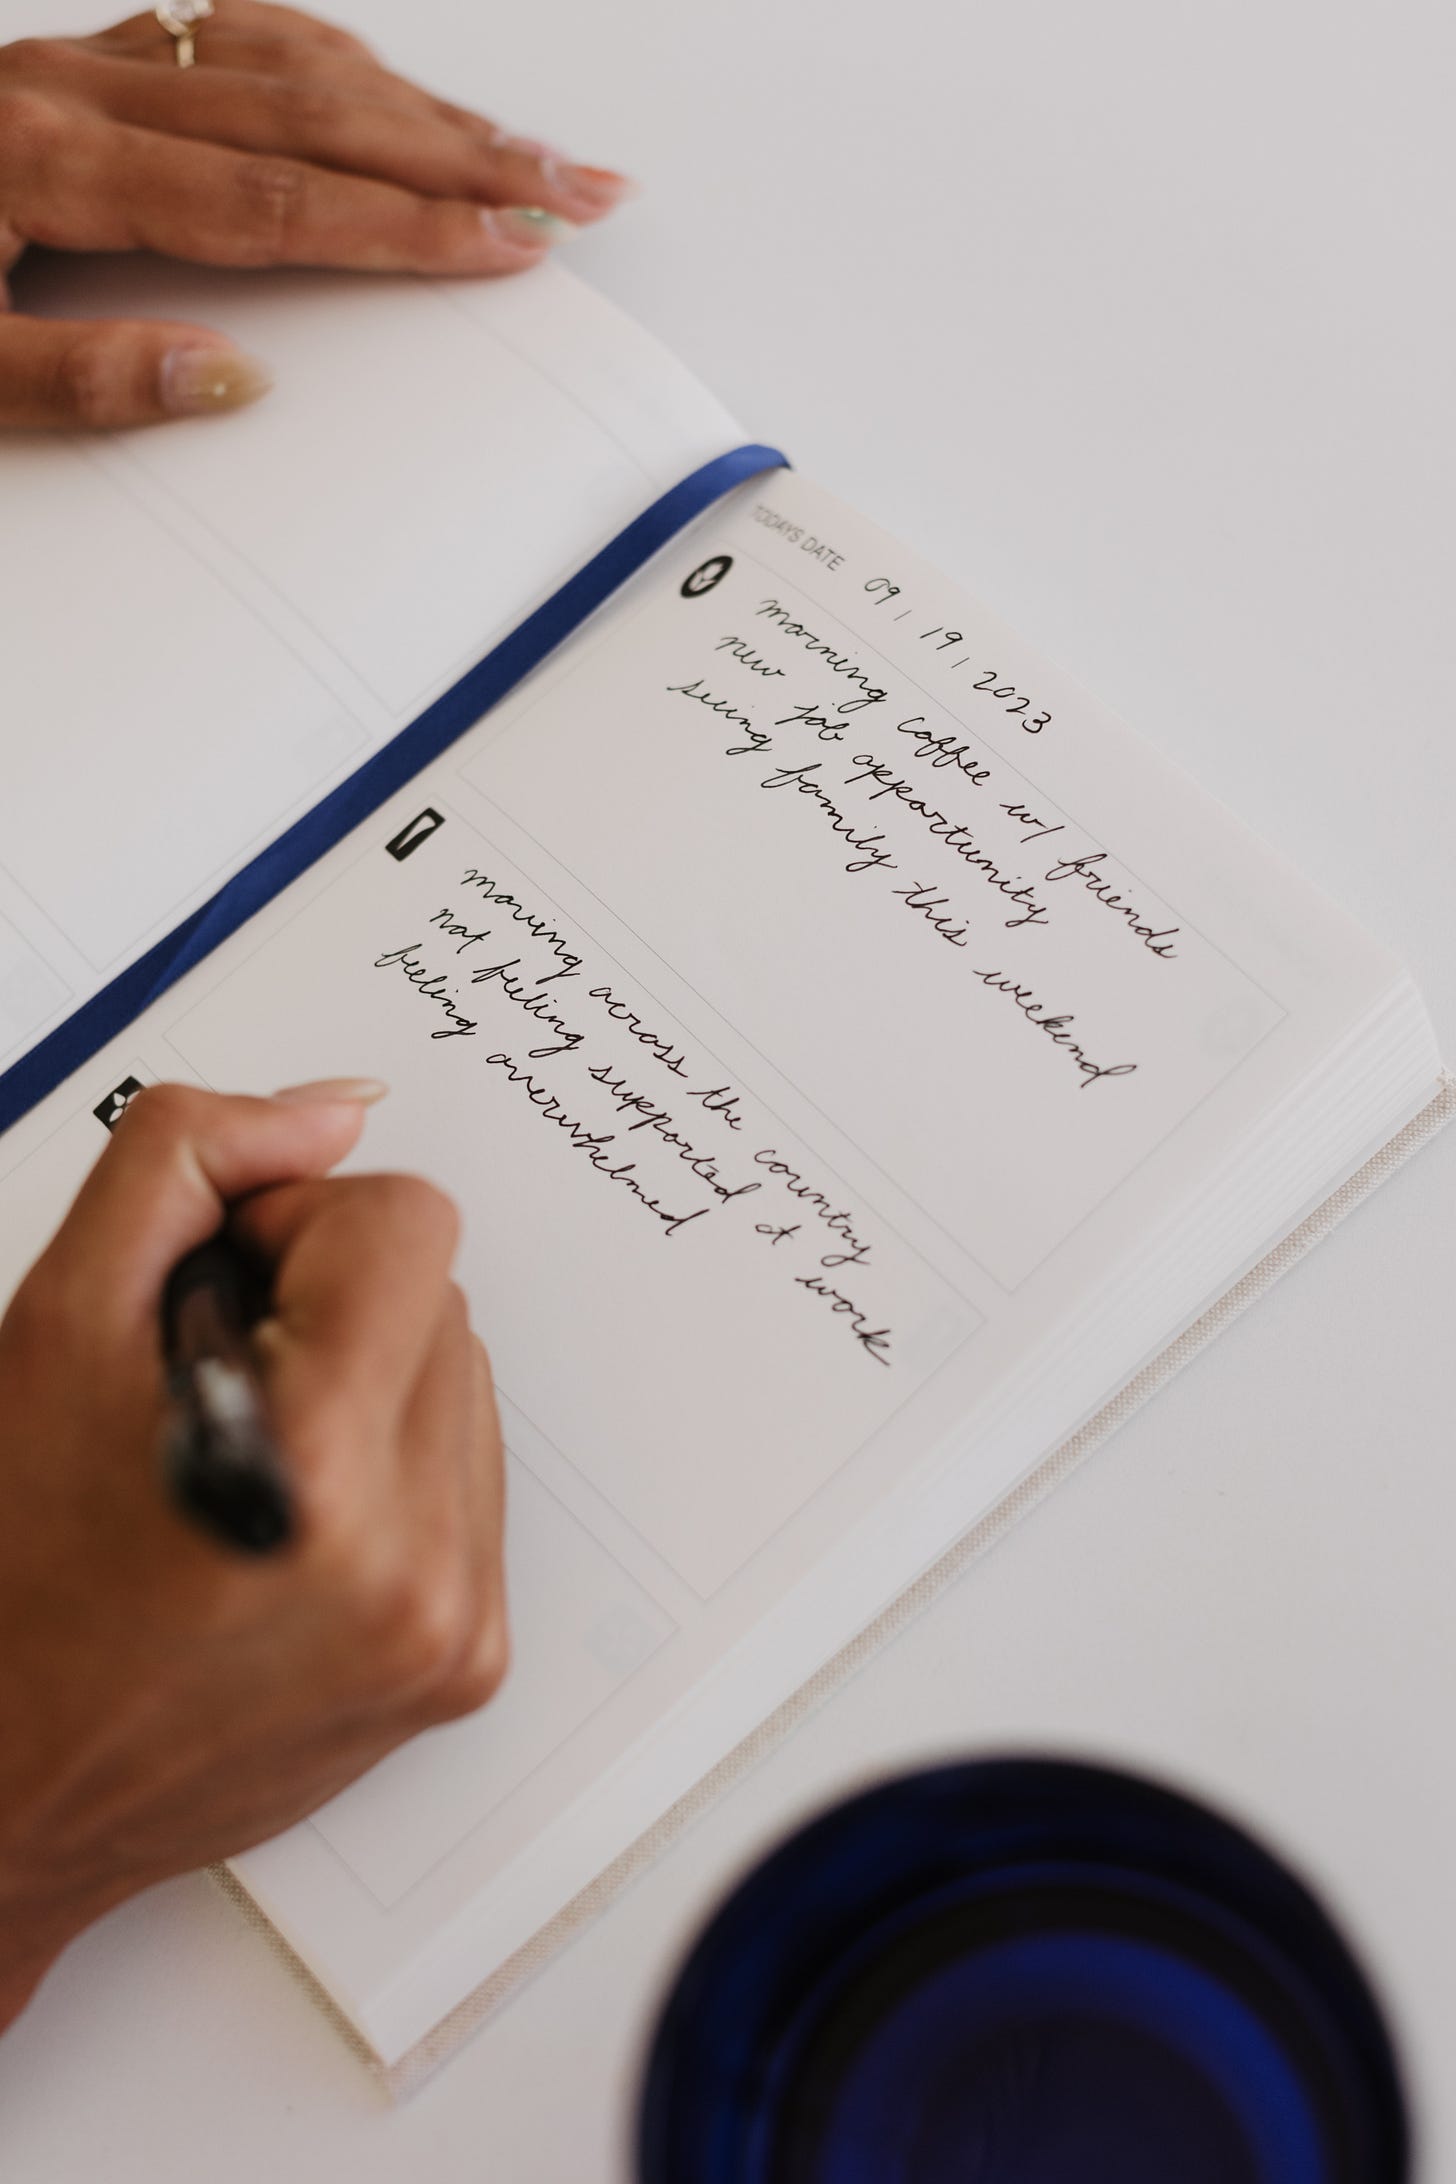 TODAYS DATE 09 / 19 / 2023
morning coffee w/ friends
new job opportunity
seeing family this weekend
moving across the country
not feeling supported at work
feeling overwhelmed